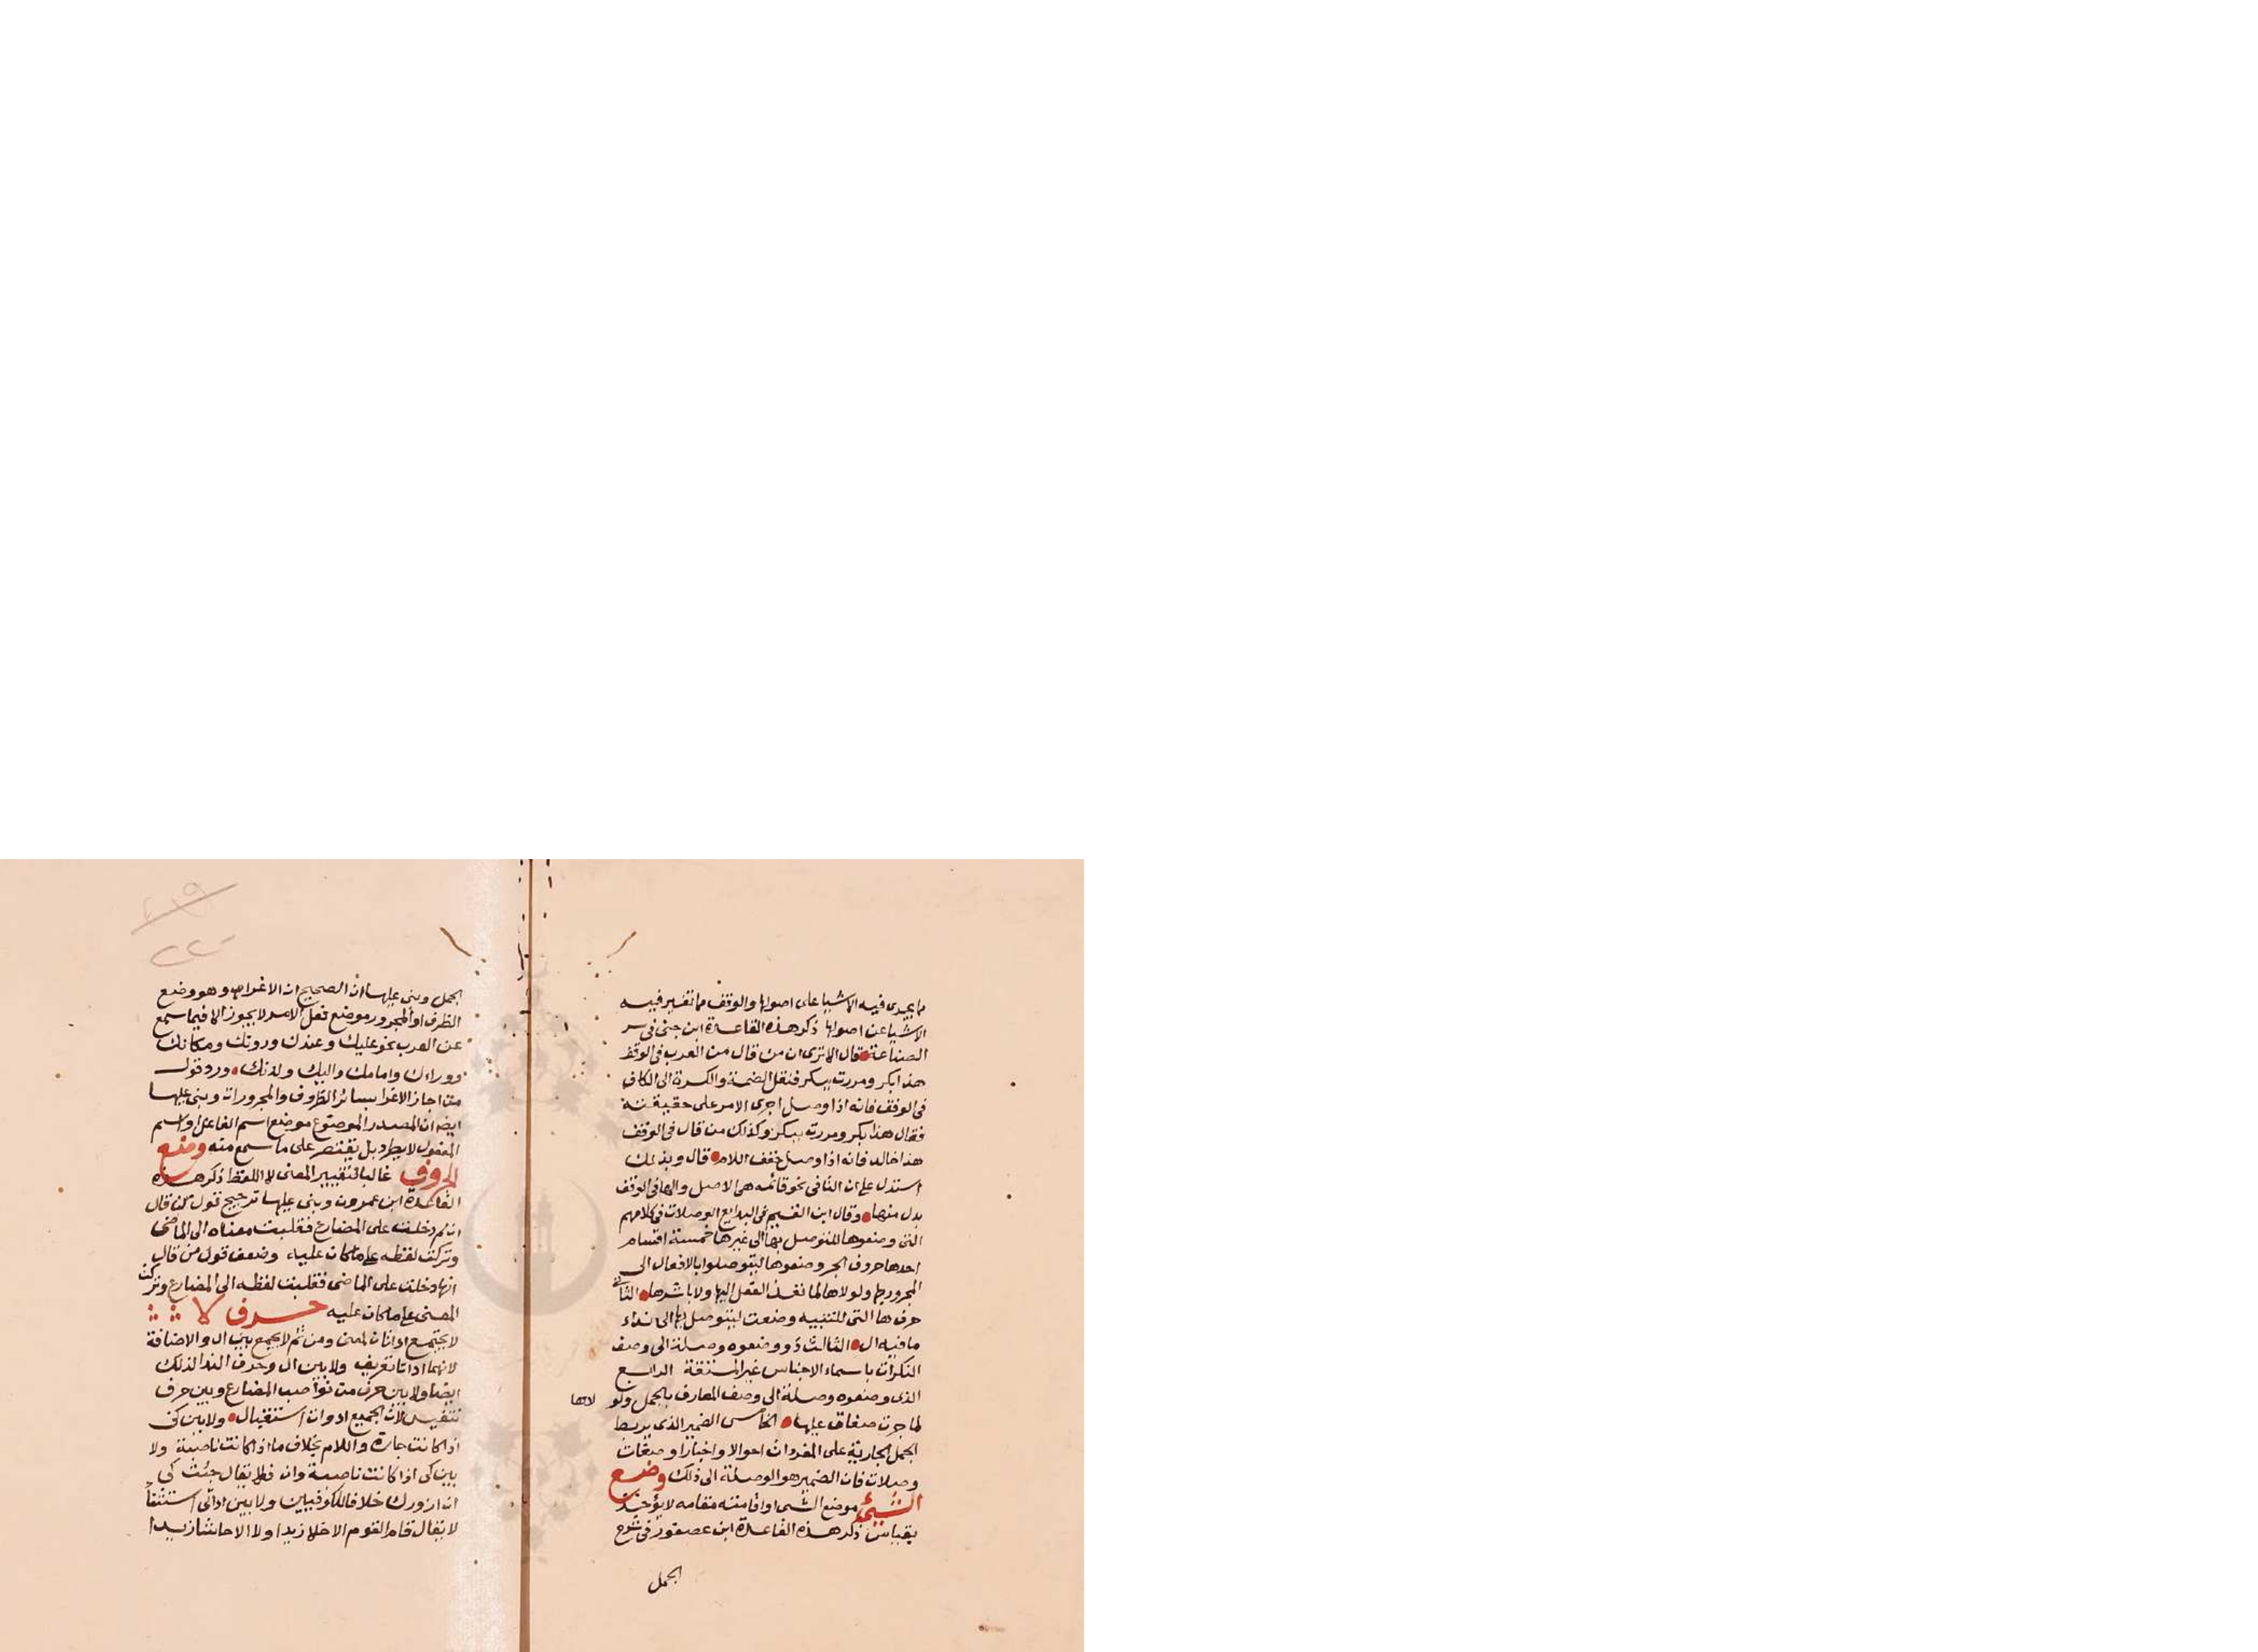 مما يجرى فيه الاشيا على اصولها والوقف مما تغير فيه
الاشيا عن اصولها ذكر هذه القاعدة ابن جنى فى سر
الصناعة قال الا ترى ان من قال من العرب فى الوقف
هذا بكر ومررت ببكر فنقل الضمة والكسرة الى الكاف
فى الوقف فانه اذا وصل اجرى الامر على حقيقته
فقال هذا بكر ومررت ببكر وكذلك من قال فى الوقف
هذا خالد فانه اذا وصل خفف اللام قال وبذلك
استدل على ان التا فى نحو قائمه هى الاصل والها فى الوقف
بدل منها وقال ابن القيم فى البدايع الوصلات فى كلامهم
التى وضعوها للتوصل بها الى غيرها خمسة اقسام
احدها حروف الجر وضعوها ليتوصلوا بالافعال الى
المجرور بها ولولاها لما نفذ الفعل اليها ولا باشرها الثانى
حرف ها التى للتنبيه وضعت ليتوصل بها الى نداء
ما فيه ال الثالث ذو وضعوه وصلة الى وصف
النكرات باسماء الاجناس غير المشتقة الرابع
الذى وضعوه وصلة الى وصف المعارف بالجمل ولو لاها
لما جرت صفات عليها الخامس الضمير الذى يربط
الجمل الجارية على المفردات احوالا واخبارا وصفات
وصلات فان الضمير هو الوصلة الى ذلك وضع
الشىء موضع الشى او اقامته مقامه لا يؤخذ
بقياس ذكر هذه القاعدة ابن عصفور فى شرح
الجمل
الجمل وبنى عليها ان الصحيح ان الاغراء وهو وضع
الظرف او المجرور موضع فعل الامر لا يجوز الا فيما سمع
عن العرب نحو عليك وعندك ودونك ومكانك
ووراءك وامامك واليك ولدنك ورد قول
من اجاز الاغرا بسائر الظروف والمجرورات وبنى عليها
ايضا ان المصدر الموضوع موضع اسم الفاعل او اسم
المفعول لا يطرد بل يقتصر على ما سمع منه وضع
الحروف غالبا لتغيير المعنى لا اللفظ ذكر هذه
القاعدة ابن عمرون وبنى عليها ترجيح قول من قال
ان لم دخلت على المضارع فقلبت معناه الى الماضى
وتركت لفظه على ما كان عليه وضعف قول من قال
انها دخلت على الماضى فقلبت لفظه الى المضارع وتركت
المعنى على ما كان عليه حرف لا
لا يجتمع اداتان لمعنى ومن ثم لا يجمع بين ال والاضافة
لانهما اداتا تعريف ولا بين ال وحرف الندا لذلك
ايضا ولا بين حرف من نواصب المضارع وبين حرف
تنفيس لان الجميع ادوات استقبال ولا بين كى
اذا كانت جارة واللام بخلاف ما اذا كانت ناصبة ولا
بين كى اذا كانت ناصبة وان فلا يقال جئت كى
ان ازورك خلافا للكوفيين ولا بين اداتى استثناء
لا يقال قام القوم الا خلا زيدا ولا الا حاشا زيدا